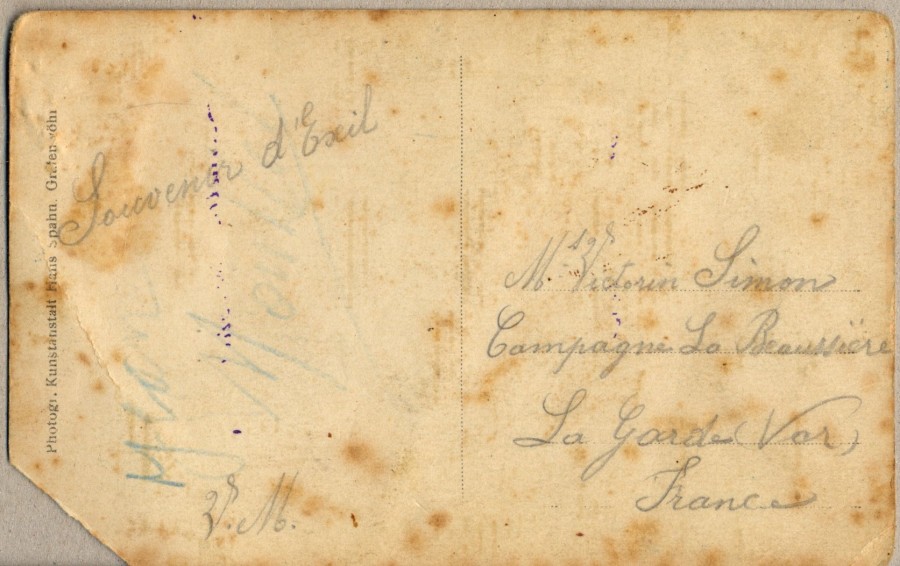 Photogr. Kunstanstalt Hans Spahn, Grafenwöhr
Souvenir d'Exil
V. M.
Victorin Simon
Campagne La Beaussière
La Garde (Var)
France